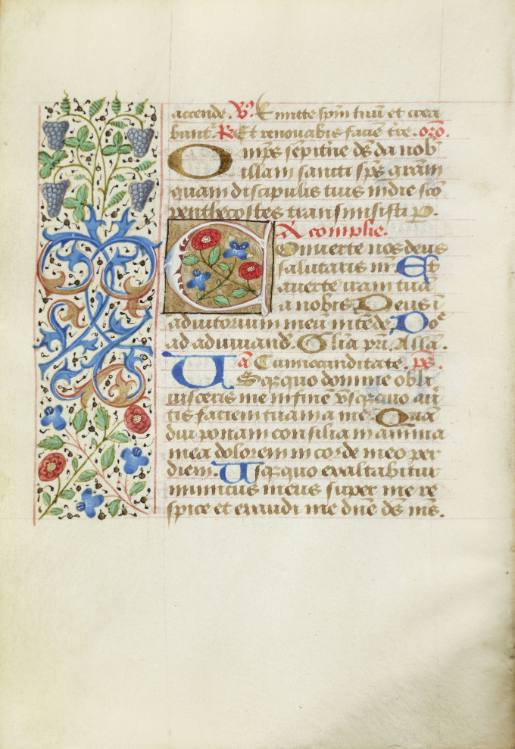 accende. V. Emitte spm tuu et crea
bunt. R. Et renovabis facie tre. oro.
Omps sempitne ds da nob
illam sancti sps gram
quam discipulis tuis in die sco
penthecostes transmisisti p.
A complie.
Converte nos deus
salutaris nr. Et
averte iram tua
a nobis. Deus i
adiutorium meu intede. Doe
ad adiuvand. Glia pri. Alla.
a Cum iocunditate. ps.
Usquo domine obli
visceris me in fine usquo aver
tis faciem tuam a me. Qua
diu ponam consilia in anima
mea dolorem in corde meo per
diem. Usquo exaltabitur
inimicus meus super me re
spice et exaudi me dne ds ms.